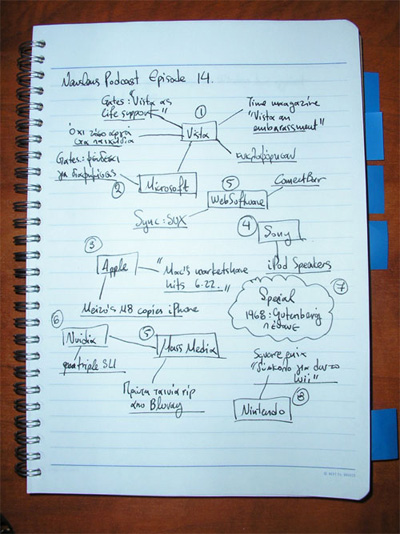 Podcast Episode 14.
Gates: Vista as
life support"
①
Time magazine
"Vista an
embarassment"
Vista
Όχι τόσο αργή
στα παιχνίδια
κυκλοφόρησαν
Gates:
για διαφημίσεις
②
Microsoft
⑤
CometBird
WebSoftware
Sync:
④
Sony
iPod Speakers
③
Apple
"Mac's marketshare
hits 6.22."
Meizu's M8 copies iPhone
⑦
Special
1968: Gutenberg
πέθανε
⑥
Nvidia
quatriple SLI
⑤
Mass Media
Πρώτη ταινία rip
από Bluray
Square enix
"δύσκολο για
wii"
Nintendo
⑧